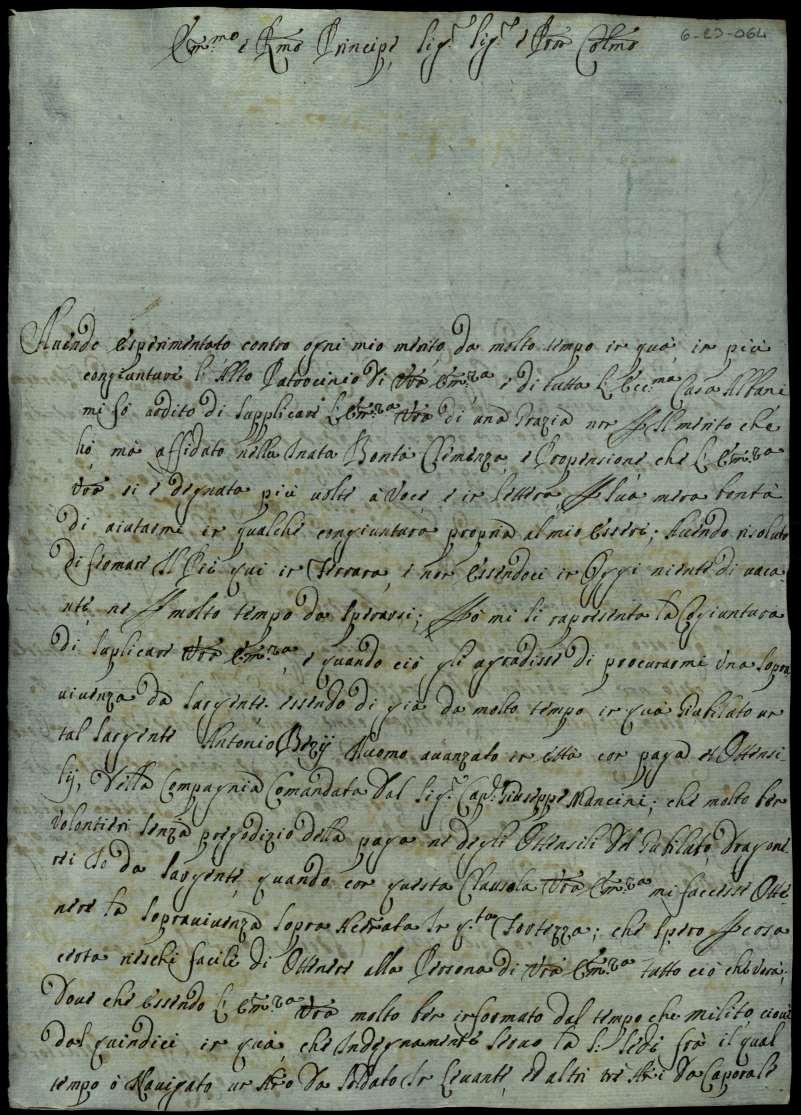 6-23-064
Em.mo e Rmo Principe, Sig.r Sig.r e Pron Colmo
Auendo esperimentato contro ogni mio merito da molto tempo in quà, in più
congiunture l'Alto Patrocinio di Vra Em.za e di tutta l'Ecc.ma Casa Albani
mi fò ardito di supplicare l'Em.za Vra di una Grazia non P il merito che
hò, mà affidato nella Inata Bontà Clemenza, e Propensione che l'Em.za
Vra si è degnata più uolte à Voce e in lettera, P sua mera bontà
di aiutarmi in qualche congiuntura propria al mio essere; Auendo risoluto
di fermare il Piè qui in Ferrara, e non essendoci in Oggi niente di uaca-
nte, ne P molto tempo da sperarsi; Pò mi si rapresenta la Cogiuntura
di suplicare Vra Em.za, e quando ciò gli agradisse di procurarmi una Sopra
uiuenza da Sargente essendo di già da molto tempo in quà Giubilato un
tal Sargente Antonio Bezij Huomo auanzato in ettà con paga et Vttensi-
lij, della Compagnia Comandata dal Sig.r Cap.o Giuseppe Mancini; che molto ben
Volontieri senza pregiudizio della paga ne degli Vttensili del Giubilato,
rei Io da Sargente, quando con questa Clausola Vra Em.za mi facesse Otte-
nere la Soprauiuenza sopra Acenata In q.ta Fortezza; che spero P cosa
certa rieschi facile di Ottenere alla Persona di Vra Em.za tutto ciò che Vorà;
Doue che essendo l'Em.za Vra molto ben informato dal tempo che milito, cioue
dal quindici in quà, che Indegnamente seruo la S: Sede frà il qual
tempo ò Nauigato un Ano da Soldato In Leuante, ed altri trè Ani da Caporale